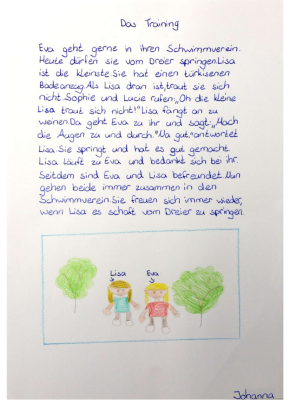 Das Training
Eva geht gerne in ihren Schwimmverein.
Heute dürfen sie vom Dreier springen.Lisa
ist die kleinste.Sie hat einen türkisenen
Badeanzug.Als Lisa dran ist,traut sie sich
nicht.Sophie und Lucie rufen:„Oh die kleine
Lisa traut sich nicht!"Lisa fängt an zu
weinen.Da geht Eva zu ihr und sagt:„Mach
die Augen zu und durch."„Na gut."antwortet
Lisa.Sie springt und hat es gut gemacht.
Lisa läuft zu Eva und bedankt sich bei ihr.
Seitdem sind Eva und Lisa befreundet.Nun
gehen beide immer zusammen in den
Schwimmverein.Sie freuen sich immer wieder,
wenn Lisa es schaft vom Dreier zu springen.
Lisa Eva
Johanna